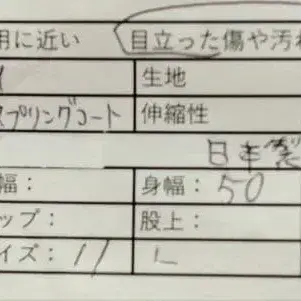 用に近い 目立った傷や汚れ
生地
スプリングコート 伸縮性
日本製
幅： 身幅：50
ップ： 股上：
イズ：11 L